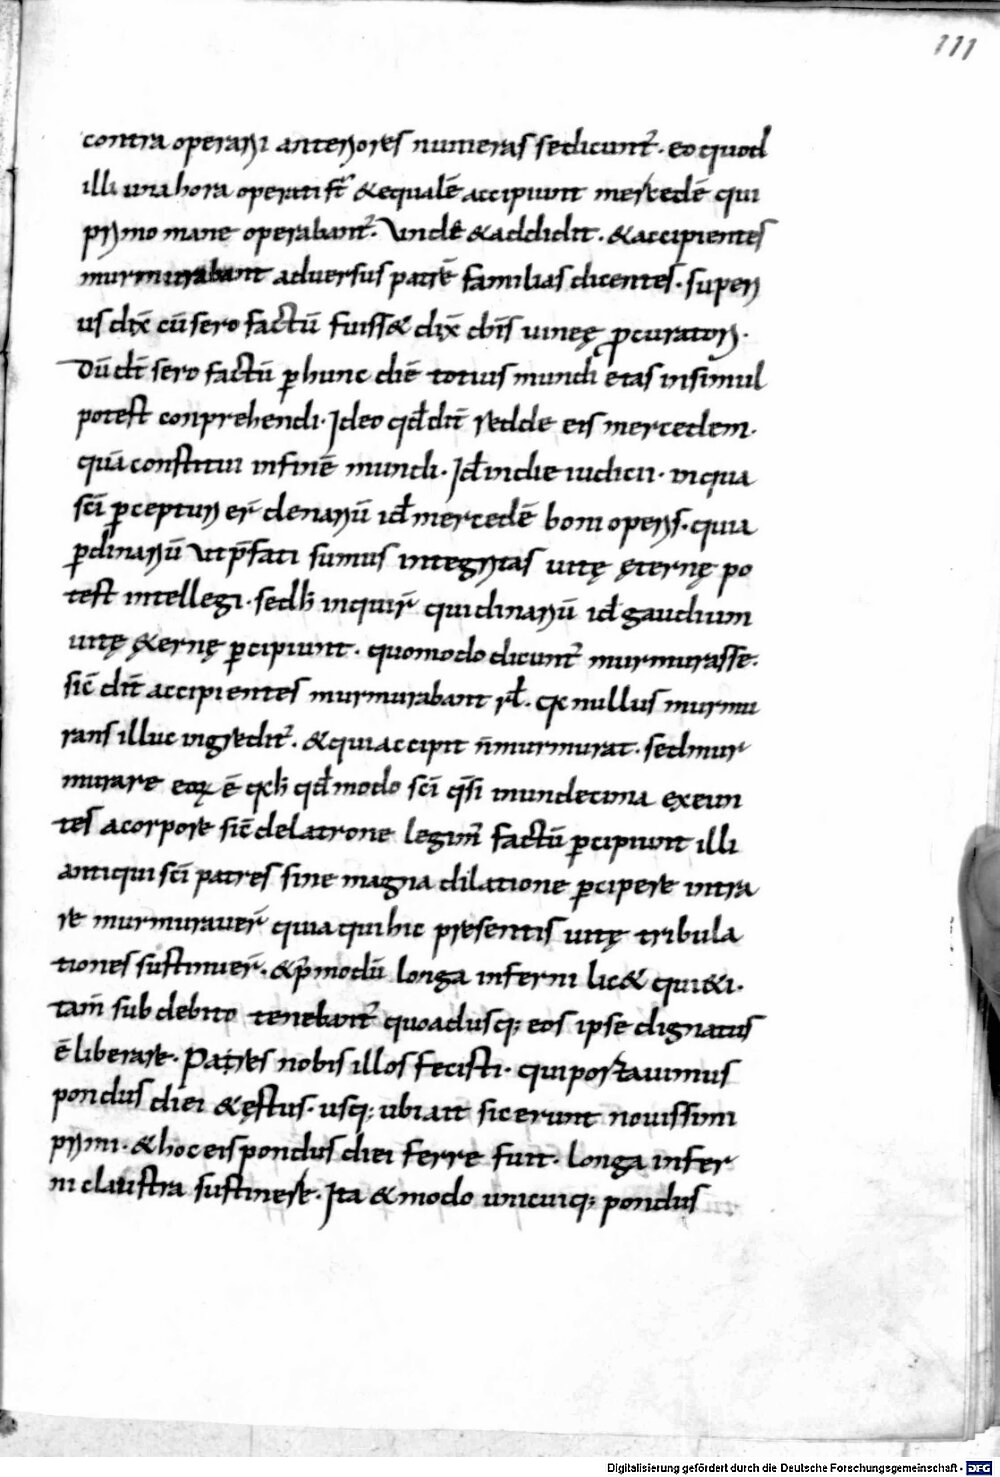 111
contra operarii anteriores numeras sedicunt᷑. eo quod
illi una hora operati st̄ &equalē accipiunt mercedē qui
primo mane operabant᷑. Undē &addidit. &accipientes
murmurabant aduersus patrē familias dicentes. superi
us dix̄ cū sero factū fuiss& dix̄ dn̄s uineę ꝓcuratori.
Dū dr̄ sero factū ꝑ hunc diē totius mundi ętas insimul
potest conprehendi. Ideo qđ dr̄ redde eis mercedem.
quā constitui infinē mundi. Iđ indie iudicii. inqua
sc̄i ꝑcepturi er̄ denariū iđ mercedē boni operis. quia
ꝑ dinariū ut p̄fati sumus integritas uitę ęternę po
test intellegi. sed h̄ inquir̄ qui dinariū iđ gaudium
uitę &ernę ꝑcipiunt. quomodo dicunt᷑ murmurasse.
sic̄ dr̄ accipientes murmurabant rł. nullus murmu
rans illuc ingredit᷑. &qui accipit n̄ murmurat. sed mur
murare eoꝝ ē qđ modo sc̄i q̄si inundecima exeun
tes acorpore sic̄ delatrone legim᷑ factū ꝑcipiunt illi
antiqui sc̄i patres sine magna dilatione ꝑcipere intra
re murmurauer̄ quia qui hic presentis uitę tribula
tiones sustinuer̄. &p̄modū longa inferni lic& qui&i.
tam̄ sub debito tenebant᷑ quoadusq; eos ipse dignatus
ē liberare. Pares nobis illos fecisti. qui portauimus
pondus diei &ęstus. usq; ubi ait sic erunt nouissimi
primi. &hoc eis pondus diei ferre fuit. longa infer
ni claustra sustinere. Ita &modo unicuiq; pondus
Digitalisierung gefördert durch die Deutsche Forschungsgemeinschaft - DFG